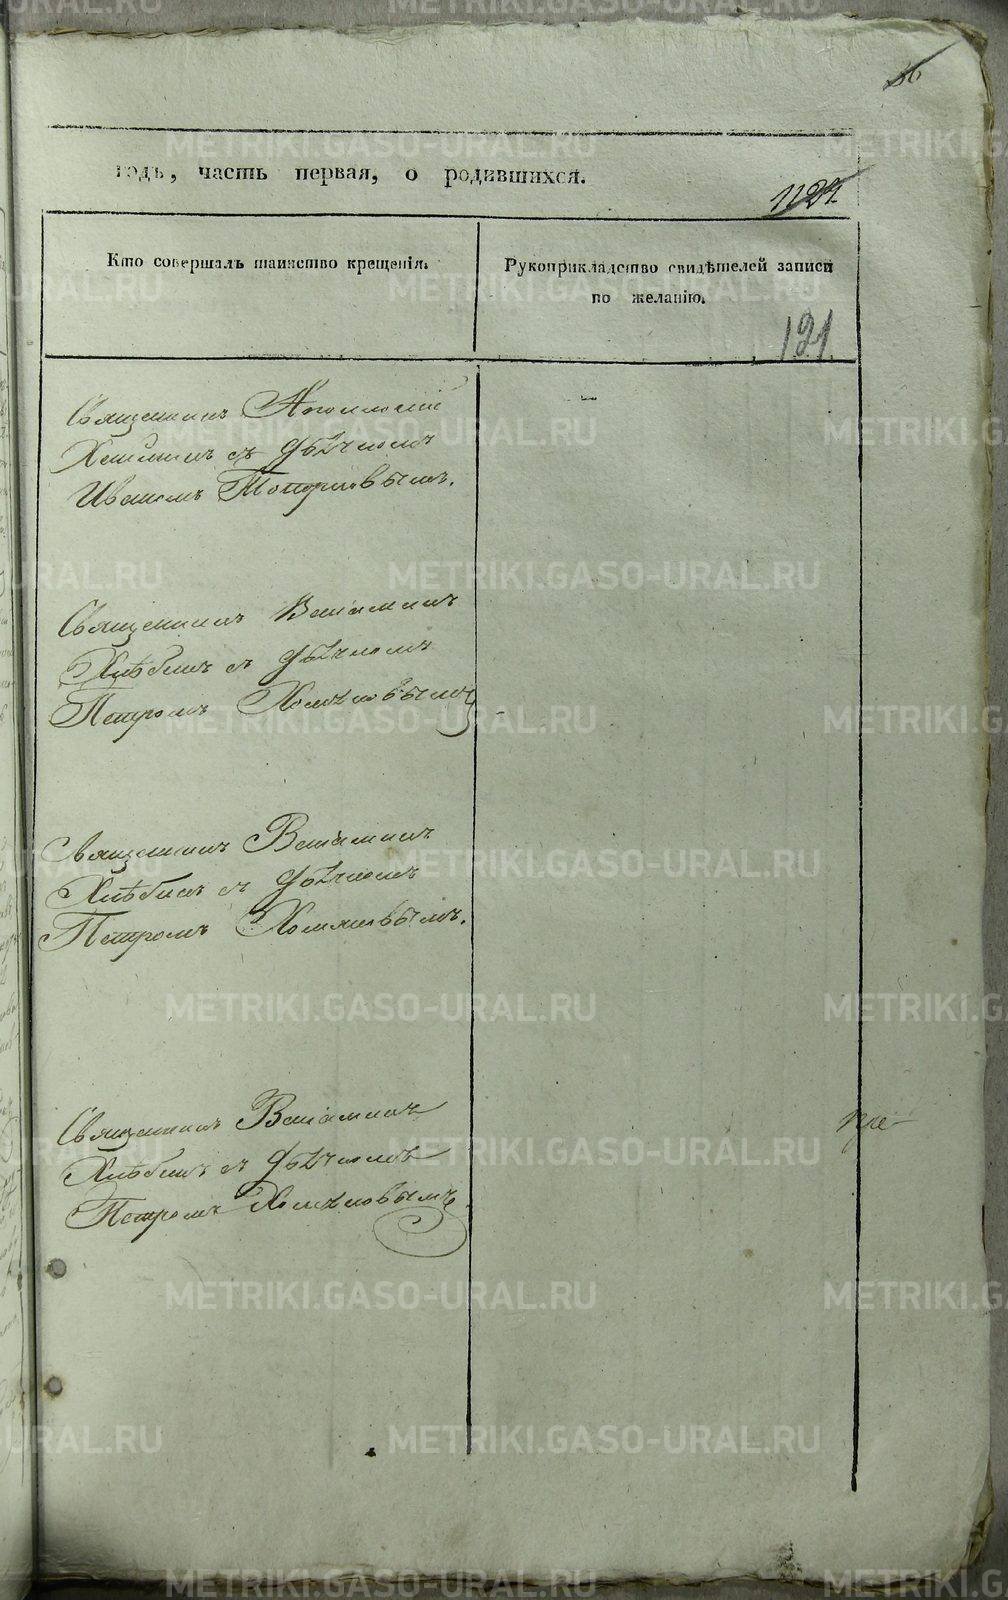 годъ, часть первая, о родившихся.
1124
Кто совершалъ таинство крещенія.
Рукоприкладство свидѣтелей записи
по желанію.
121
Священникъ
съ дьячкомъ
Иваномъ
Священникъ Веніаминъ
Хлѣбинъ съ дьячкомъ
Петромъ Хомяковымъ
Священникъ Веніаминъ
Хлѣбинъ съ дьячкомъ
Петромъ Хомяковымъ.
Священникъ Веніаминъ
Хлѣбинъ съ дьячкомъ
Петромъ Хомяковымъ.
METRIKI.GASO-URAL.RU